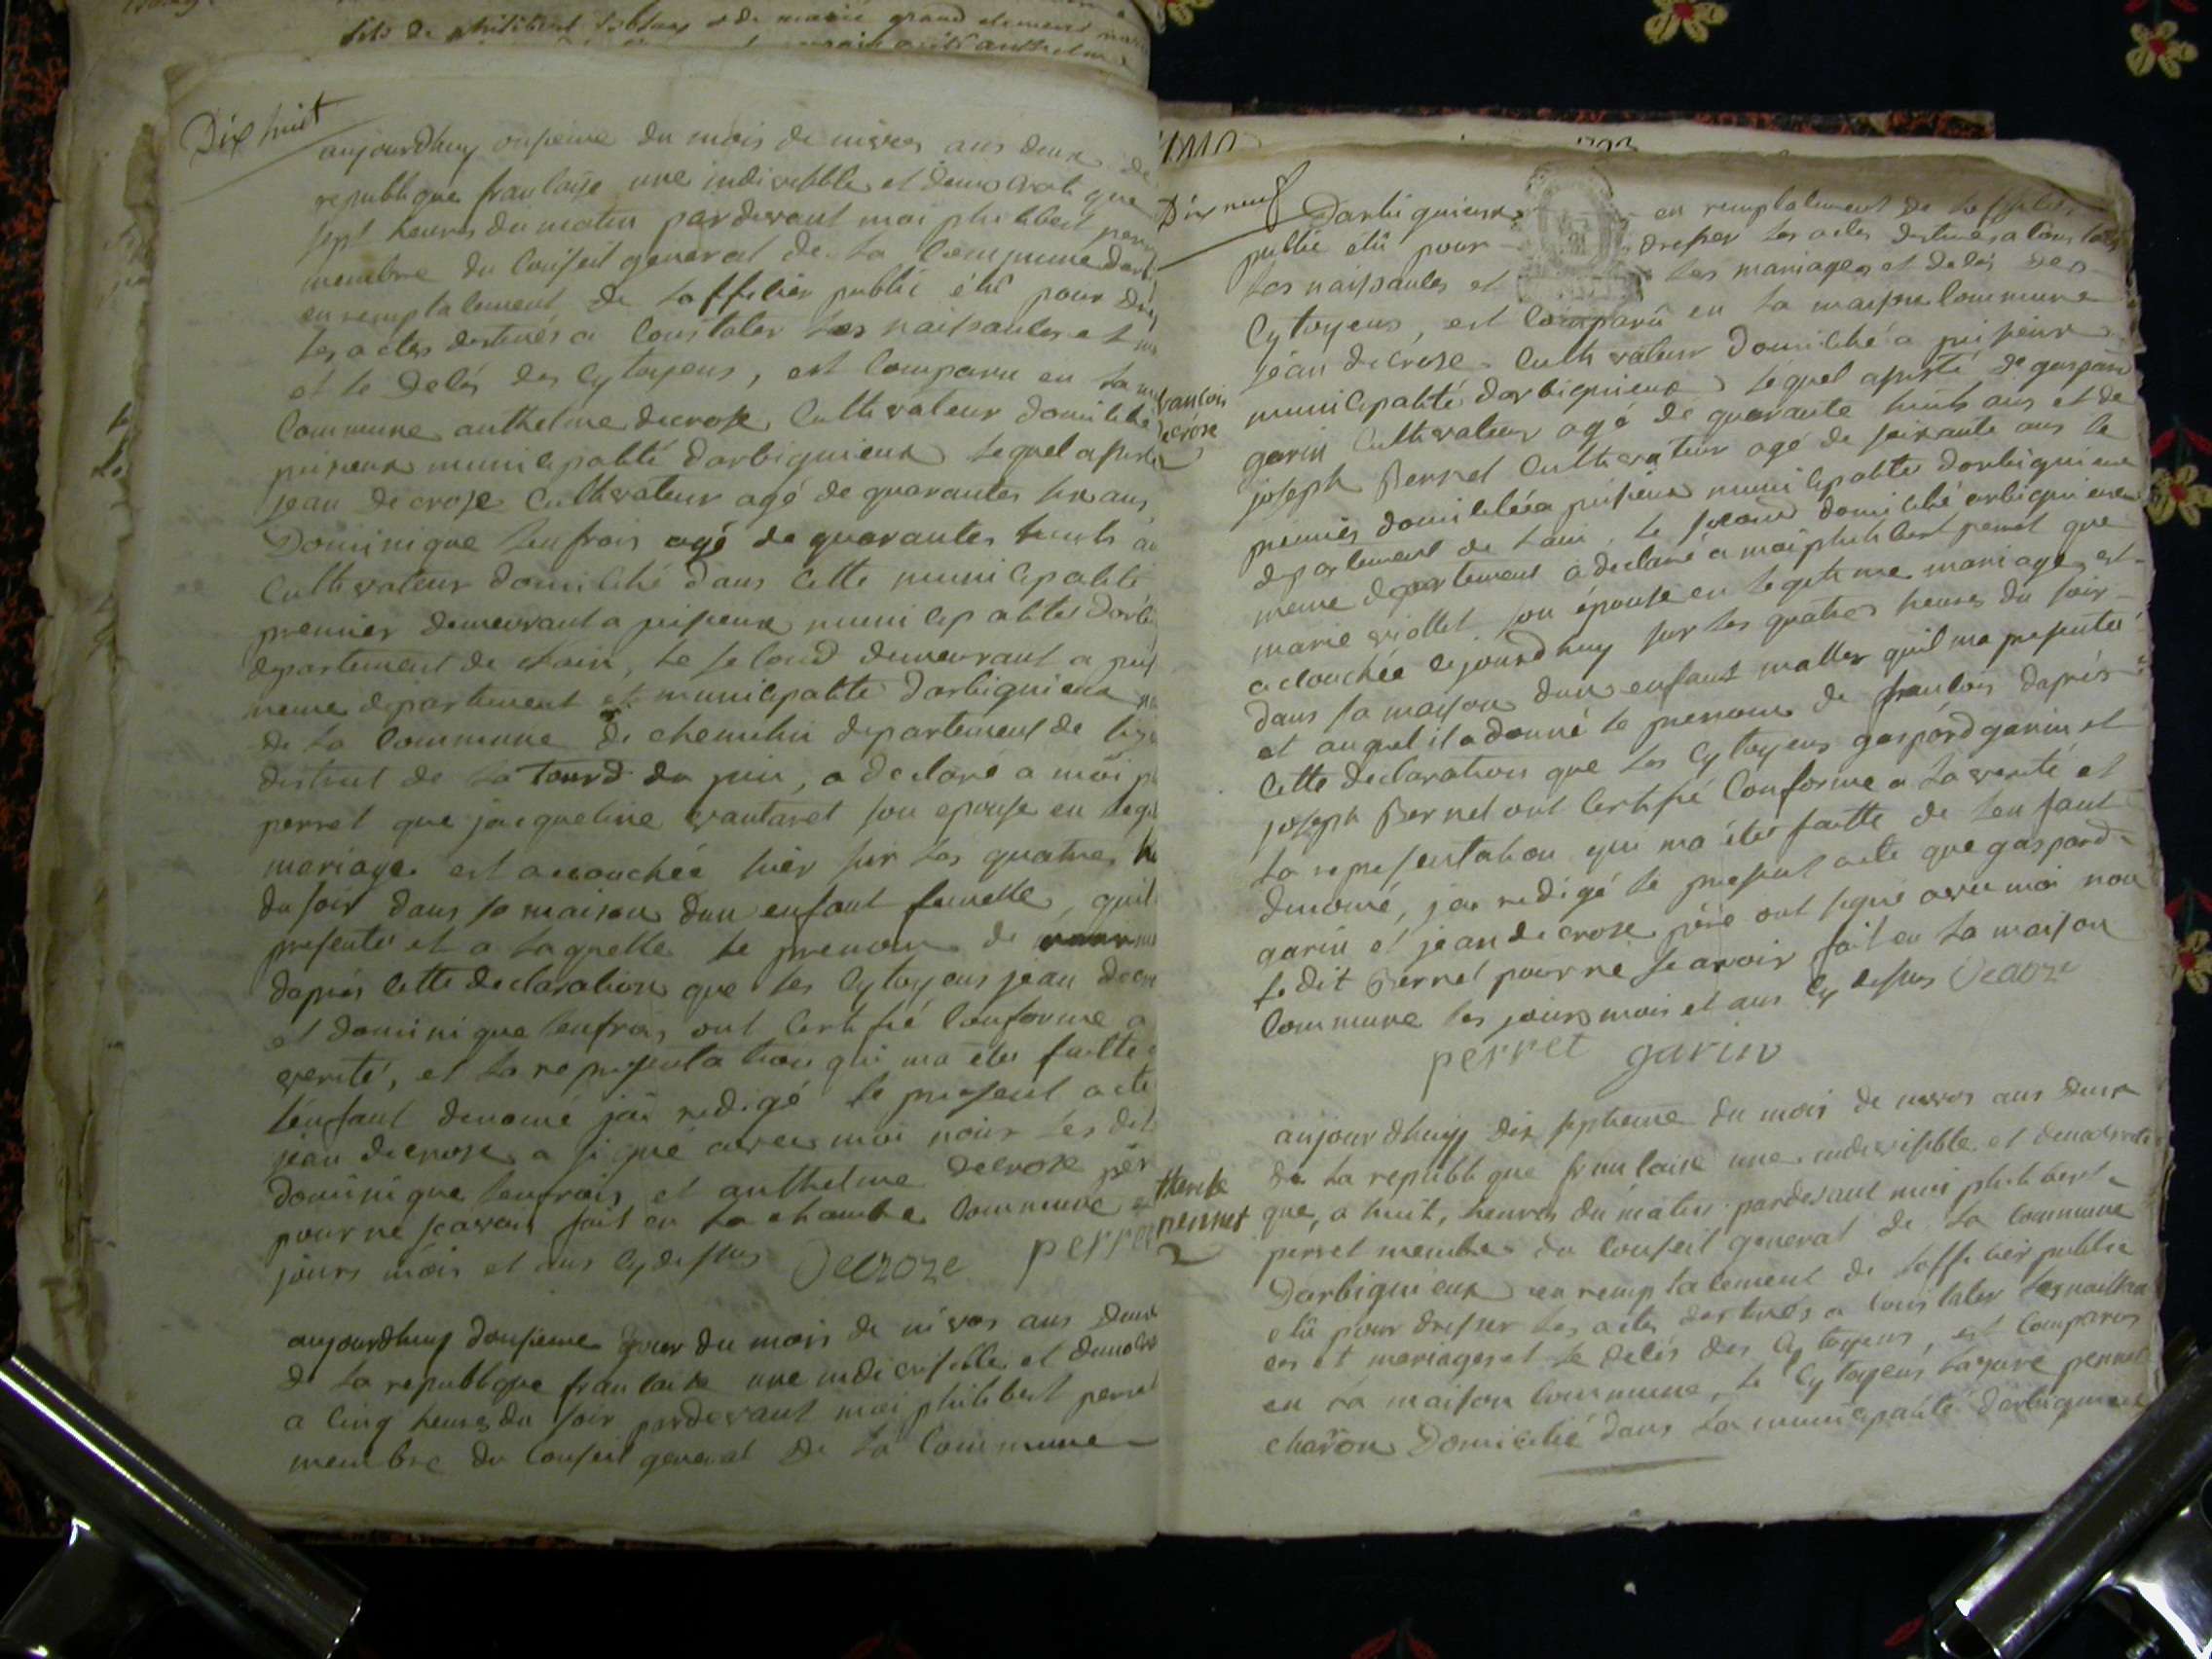 fils de philibert et de marie grand
Dix huit
aujourdhuy onsieme du mois de nivos ans deux de
republique francaise une indivisible et democratique
sept heures du matin pardevant moi philibert perr
membre du conseil general de la commune darb
en remplacement de lofficier public élû pour dre
les actes destinés a constater les naissances et
et le decés des cytoyens, est comparu en la m
commune anthelme decrose cultivateur domicilié
peisieux municipalité darbignieux lequel assisté
jean decrose cultivateur agé de quarantes six ans
Dominique lenfrois agé de quarantes huits a
cultivateur domicilié dans cette municipalité
premier demeurant a peisieux municipalites darbi
departement de lain, le second demeurant a peis
meme departement et municipalite darbignieux
de la commune de chemelin departement de
district de la tourd du pin, a declaré a moi p
perret que jacqueline vautaret son epouse en legi
mariage est acouchée hier sur les quatres he
du soir dans sa maison dun enfant femelle, quil
presentes et a laquelle le prenom de
dapres cette declaration que les cytoyens jean decr
et dominique lenfrois ont certifié conforme a
verité, et la representation qui ma étes faitte
lenfant denomé jai redigé le present acte
jean decrose a signé avec moi nois les dit
dominique lenfrois et anthelme decrose per
pour ne scavoir fait en la chambre commune
jours mois et ans cy dessus Decroze perret
aujourdhuy dousieme jour du mois de nivos ans deux
de la republique francaise une indivisible et democra
a cinq heures du soir pardevant moi philibert perret
membre du conseil general de la commune
Dix neuf
Darbignieux en remplacement de lofficier
public élû pour dresser les actes destines a constater
les naissances et les mariages et decés des
cytoyens, est comparû en la maison commune
jean decrose cultivateur domicilié a peisieux
francois
decrose
municipalité darbignieux lequel assisté de gaspard
garin cultivateur agé de quarante huits ans et de
joseph Bernet cultivateur agé de soixante ans le
premier domicilié a peisieux municipalité darbignieux
departement de lain, le second domicilié arbignieux
meme departement a declaré a moi philibert perret que
marie viollet son épouse en legitime mariage est
acouchée cejourdhuy sur les quatres heures du soir
dans sa maison dun enfant malles quil ma presentes
et auquel il a donné le prenom de francois daprés
cette declaration que les cytoyens gaspard garin et
joseph Bernet ont certifié conforme a la verité et
la representation qui ma étes faitte de lenfant
denomé, jai redigé le present acte que gaspard
garin et jean decrose pére ont signé avec moi non
ledit Bernet pour ne scavoir fait en la maison
commune les jours mois et ans cy dessus Decroze
perret garin
aujourdhuy dix septieme du mois de nivos ans deux
de la republique francaise une indivisible et democrati
therese
pennet
que, a huit heures du matin pardevant moi philibert
perret membre du conseil general de la commune
Darbignieux en remplacement de lofficier public
élû pour dresser les actes destinés a constater les naissan
ces et mariages et le decés des cytoyens, est comparus
en la maison commune, le cytoyens lazare pennet
charon Domicilié dans la municipalité darbignieux